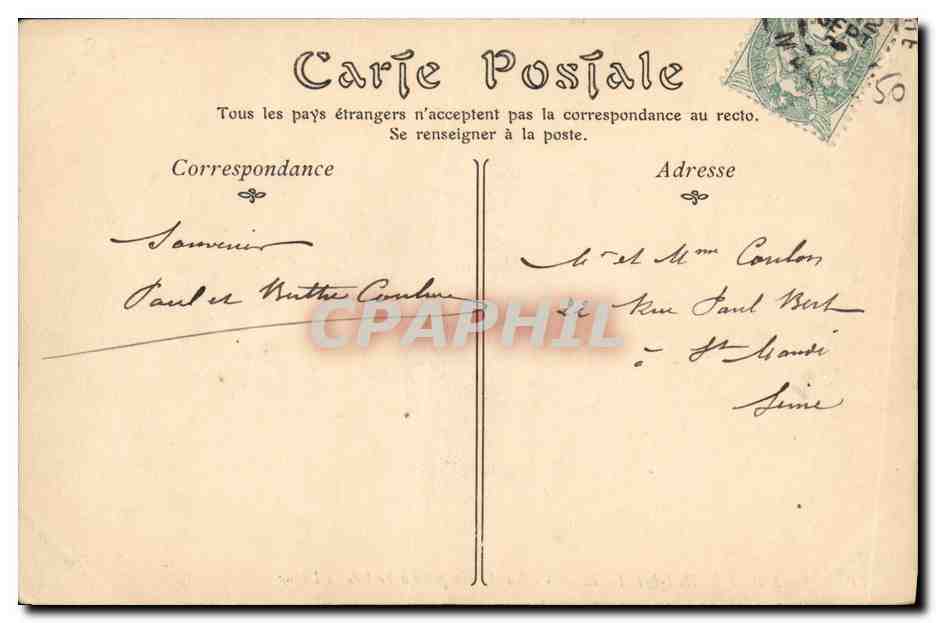 Carte Postale
Tous les pays étrangers n'acceptent pas la correspondance au recto.
Se renseigner à la poste.
Correspondance
Adresse
Souvenir
Paul et Berthe
Mr et Mme Coulon
22 Rue Paul Bert
à St Mandé
Seine
SEPT
50
CPAPHIL